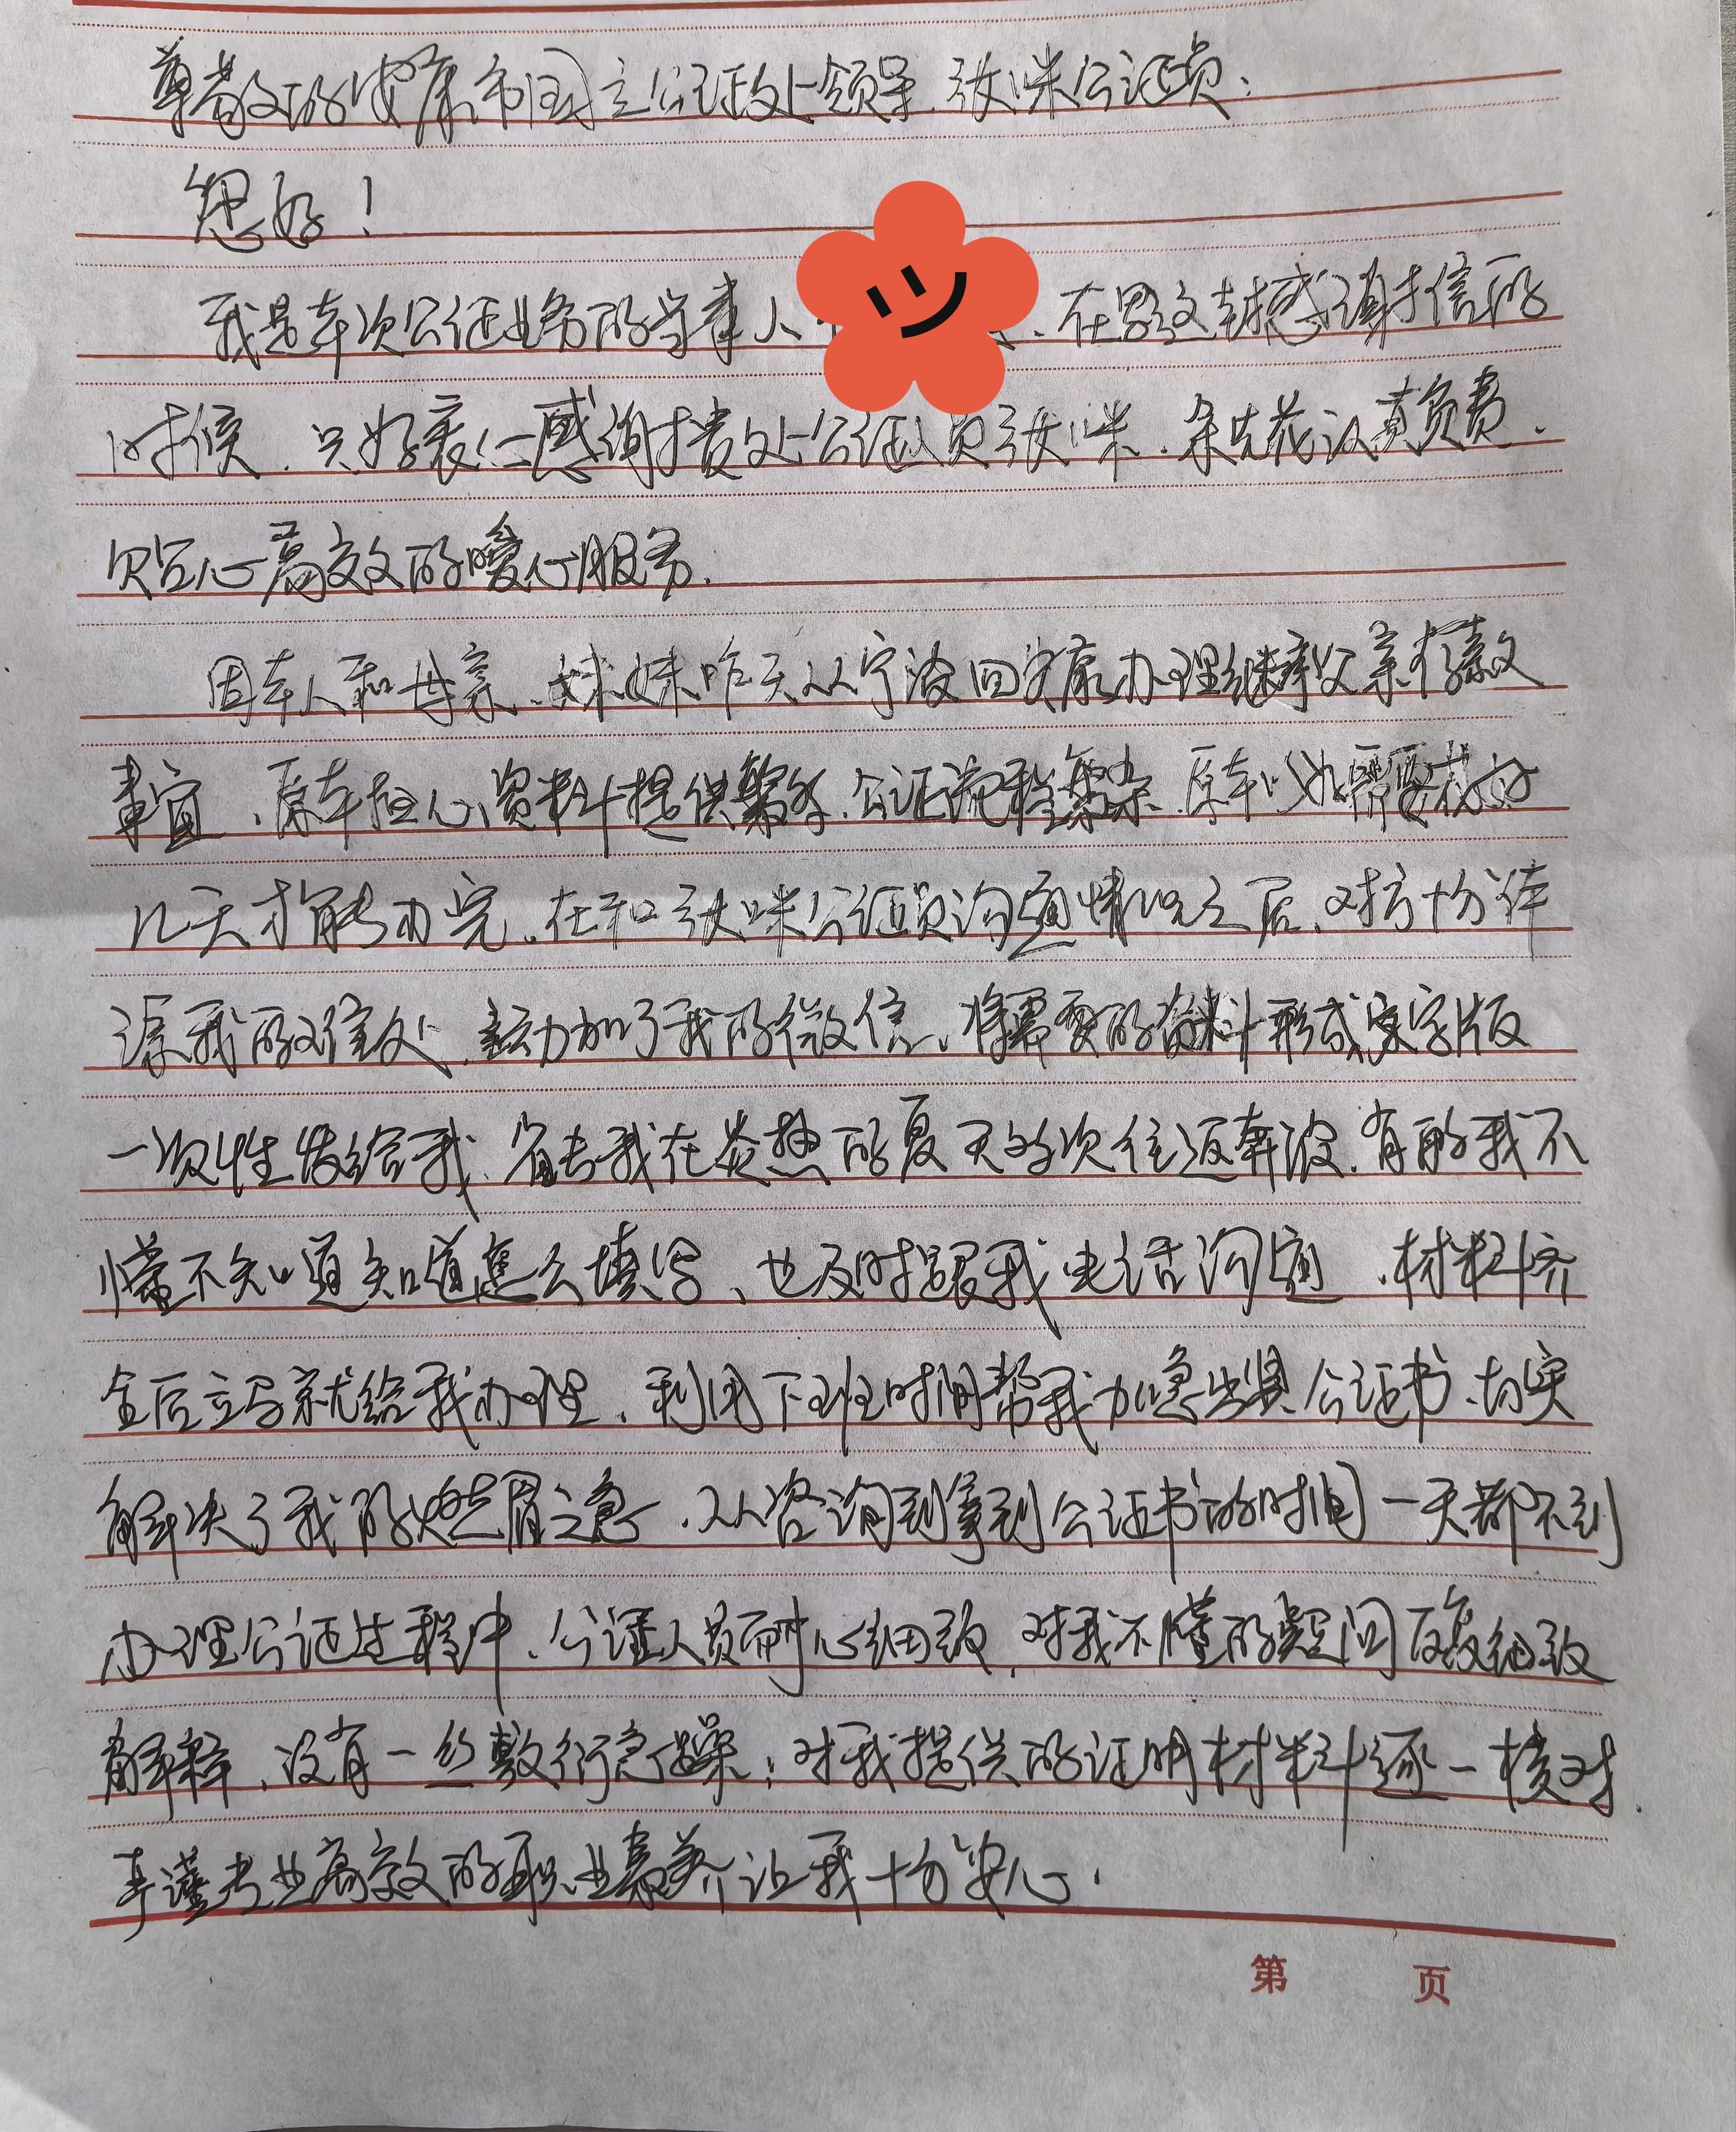 尊敬的安康市国立公证处领导、张咪公证员：
您好！
我是本次公证业务的当事人、在写这封感谢信的
时候、只好衷心感谢贵处公证人员张咪、余先花认真负责、
贴心高效的暖心服务。
因本人和母亲、妹妹昨天从宁波回安康办理继承父亲存款
事宜、原本担心资料提供繁多、公证流程繁杂、原本以为需要花好
几天才能办完、在和张咪公证员沟通情况之后、对方十分体
谅我的难处、主动加了我的微信、将需要的资料形成文字版
一次性发给我、省去我在炎热的夏天多次往返奔波、有的我不
懂不知道知道怎么填写、也及时跟我电话沟通、材料齐
全后立马就给我办理、利用下班时间帮我加急出具公证书、切实
解决了我的燃眉之急、从咨询到拿到公证书的时间一天都不到
办理公证过程中、公证人员耐心细致、对我不懂的疑问反复细致
解释、没有一丝敷衍急躁；对我提供的证明材料逐一核对、
严谨专业高效的职业素养让我十分安心。
第 页